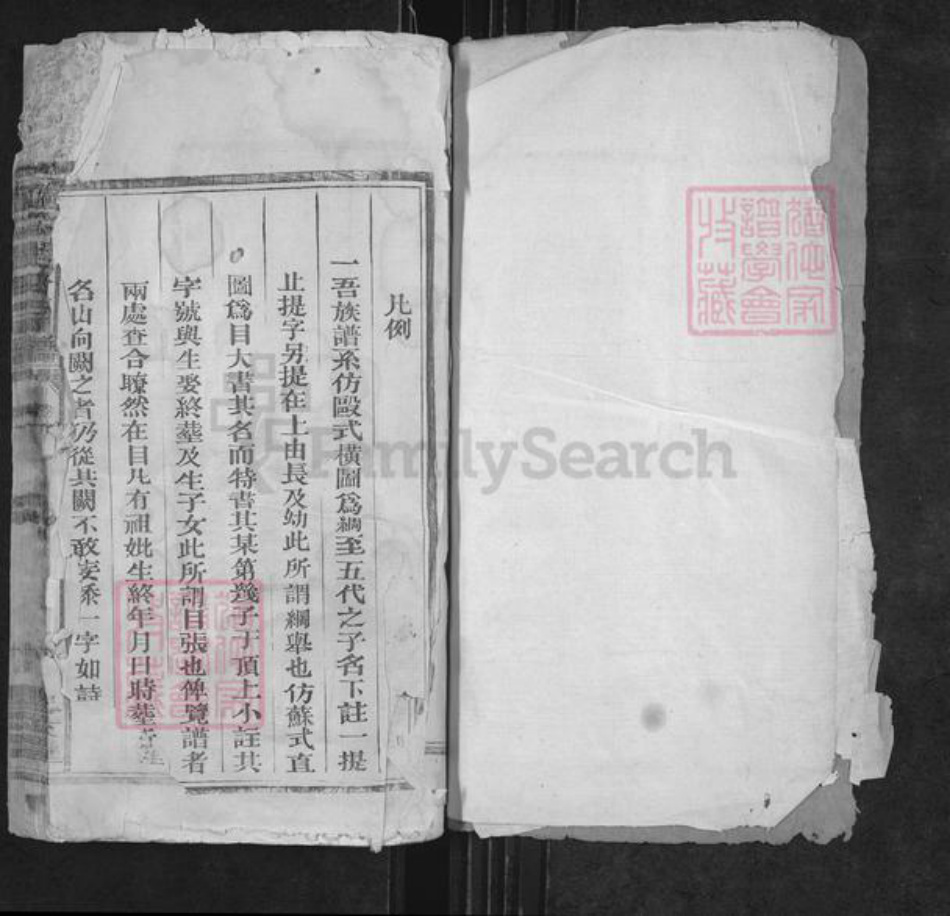 凡例
一吾族譜系仿歐式橫圖爲綱至五代之子名下註一提
止提字另提在上由長及幼此所謂綱舉也仿蘇式直
圖爲目大書其名而特書其某第幾子于頂上小註其
字號與生娶終塟及生子女此所謂目張也俾覽譜者
兩處查合瞭然在目凡有祖妣生終年月日時塟
名山向闕之者仍從其闕不敢妄忝一字如詩
FamilySearch
譜學會
家
藏